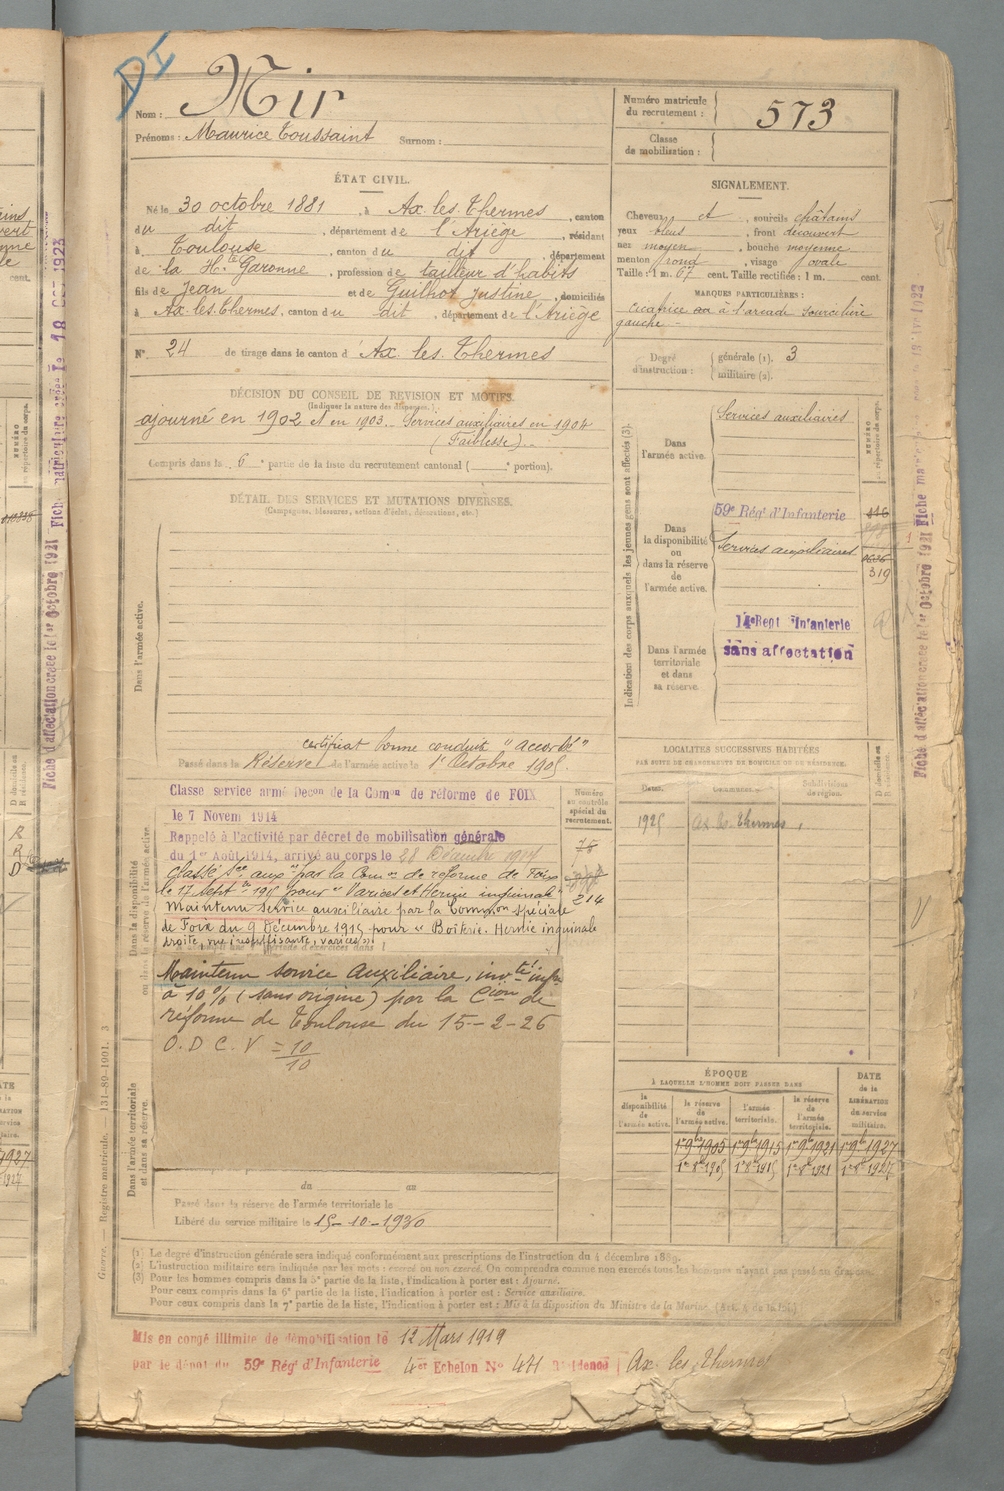 DI
Nom : Mir
Prénoms : Maurice Toussaint Surnom :
Numéro matricule du recrutement : 573
Classe de mobilisation :
ÉTAT CIVIL.
Né le 30 octobre 1881, à Ax les Thermes, canton
du dit, département de l'Ariège, résidant
à Toulouse, canton du dit, département
de la Hte Garonne, profession de tailleur d'habits
fils de Jean et de Guilhot Justine, domiciliés
à Ax les Thermes, canton du dit, département de l'Ariège
N° 24 de tirage dans le canton d'Ax les Thermes
SIGNALEMENT.
Cheveux et, sourcils châtains
yeux bleus, front découvert
nez moyen, bouche moyenne
menton rond, visage ovale
Taille : 1 m. 67 cent. Taille rectifiée : 1 m. cent.
MARQUES PARTICULIÈRES :
cicatrice à l'arcade sourcilière
gauche
Degré d'instruction : générale (1). 3
militaire (2).
DÉCISION DU CONSEIL DE REVISION ET MOTIFS.
(Indiquer la nature des dispenses.)
ajourné en 1902 et en 1903. Services auxiliaires en 1904
(Faiblesse)
Compris dans la 6e partie de la liste du recrutement cantonal ( e portion).
DÉTAIL DES SERVICES ET MUTATIONS DIVERSES.
(Campagnes, blessures, actions d'éclat, décorations, etc.)
Dans l'armée active.
certificat bonne conduite "accordé"
Passé dans la Réserve de l'armée active le 1er Octobre 1905.
Indication des corps auxquels les jeunes gens sont affectés (3).
NUMÉRO au répertoire du corps.
Dans l'armée active.
Services auxiliaires
Dans la disponibilité ou dans la réserve de l'armée active.
59e Rég. d'Infanterie
Services auxiliaires
319
Dans l'armée territoriale et dans sa réserve.
14e Regt Infanterie
sans affectation
Dans la disponibilité ou dans la réserve de l'armée active.
Classe service armé Decon de la Comon de réforme de FOIX
le 7 Novem 1914
Rappelé à l'activité par décret de mobilisation générale
du 1er Août 1914, arrivé au corps le 28 Décembre 1914
Classé Sce aux. par la Comon de réforme de Foix
le 17 Sept. 1915 pour "Varices et Hernie inguinale"
Maintenu Service auxiliaire par la Common Spéciale
de Foix du 9 Décembre 1915 pour "Boiterie. Hernie inguinale
droite, vue insuffisante, varices"
Numéro au contrôle spécial du recrutement.
78
214
Maintenu service Auxiliaire, invté infre
à 10% (sans origine) par la Cion de
réforme de Toulouse du 15-2-26
O. D C. V = 10/10
LOCALITÉS SUCCESSIVES HABITÉES
PAR SUITE DE CHANGEMENTS DE DOMICILE OU DE RÉSIDENCE.
Dates. Communes. Subdivisions de région. D domicile ou R résidence.
1925 Ax les Thermes
ÉPOQUE
À LAQUELLE L'HOMME DOIT PASSER DANS
DATE de la LIBÉRATION du service militaire.
la disponibilité de l'armée active. la réserve de l'armée active. l'armée territoriale. la réserve de l'armée territoriale.
1er 9bre 1905 1er 9bre 1915 1er 9bre 1921 1er 9bre 1927
1er 8bre 1905 1er 8bre 1915 1er 8bre 1921 1er 8bre 1927
Dans l'armée territoriale et dans sa réserve.
du au
Passé dans la réserve de l'armée territoriale le
Libéré du service militaire le 15-10-1930
(1) Le degré d'instruction générale sera indiqué conformément aux prescriptions de l'instruction du 4 décembre 1889.
(2) L'instruction militaire sera indiquée par les mots : exercé ou non exercé. On comprendra comme non exercés tous les hommes n'ayant pas passé au drapeau.
(3) Pour les hommes compris dans la 5e partie de la liste, l'indication à porter est : Ajourné.
Pour ceux compris dans la 6e partie de la liste, l'indication à porter est : Service auxiliaire.
Pour ceux compris dans la 7e partie de la liste, l'indication à porter est : Mis à la disposition du Ministre de la Marine. (Art. 4 de la loi.)
Mis en congé illimité de démobilisation le 12 Mars 1919
par le dépôt du 59e Rég. d'Infanterie 4er Echelon N° 441 Résidence Ax les Thermes
Guerre. — Registre matricule. — 131-89-1901. 3
Fiche d'affectation créée le 1er Octobre 1921 Fiche matricule
Fiche d'affectation créée le 1er Octobre 1921 Fiche matricule créée le 18 OCT 1923